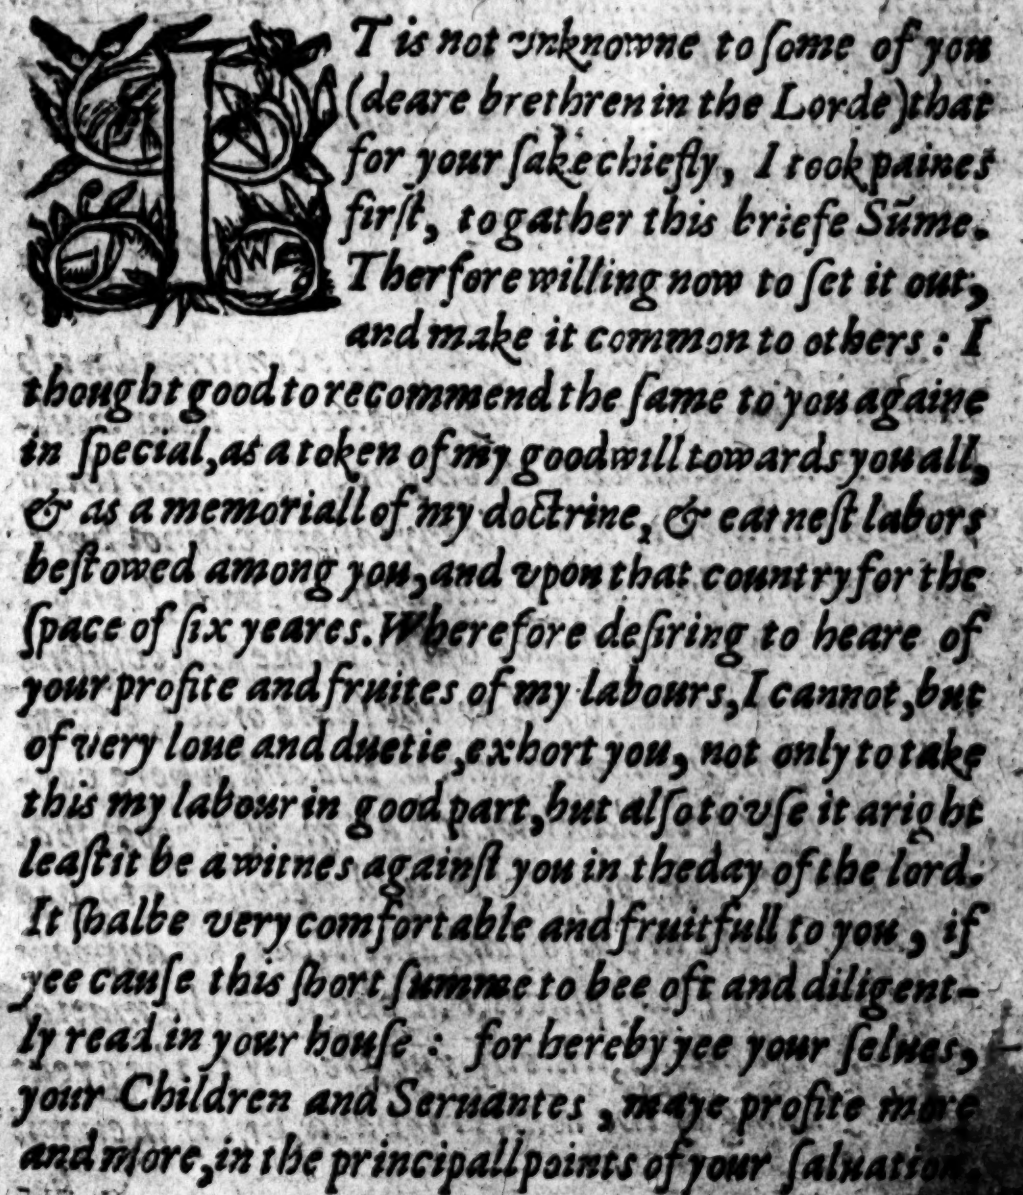 IT is not vnknowne to ſome of you
(deare brethren in the Lorde) that
for your ſake chiefly, I took paines
firſt, to gather this briefe Sūme.
Therfore willing now to ſet it out,
and make it common to others: I
thought good to recommend the ſame to you againe
in ſpecial, as a token of my good will towards you all,
& as a memoriall of my doctrine, & earneſt labors
beſtowed among you, and vpon that country for the
ſpace of ſix yeares. Wherefore deſiring to heare of
your profite and fruites of my labours, I cannot, but
of very loue and duetie, exhort you, not only to take
this my labour in good part, but alſo to vſe it aright
leaſt it be a witnes againſt you in the day of the lord.
It ſhalbe very comfortable and fruitfull to you, if
yee cauſe this ſhort ſumme to bee oft and diligent-
ly read in your houſe: for hereby yee your ſelues,
your Children and Seruantes, maye profite more
and more, in the principall points of your ſaluation.